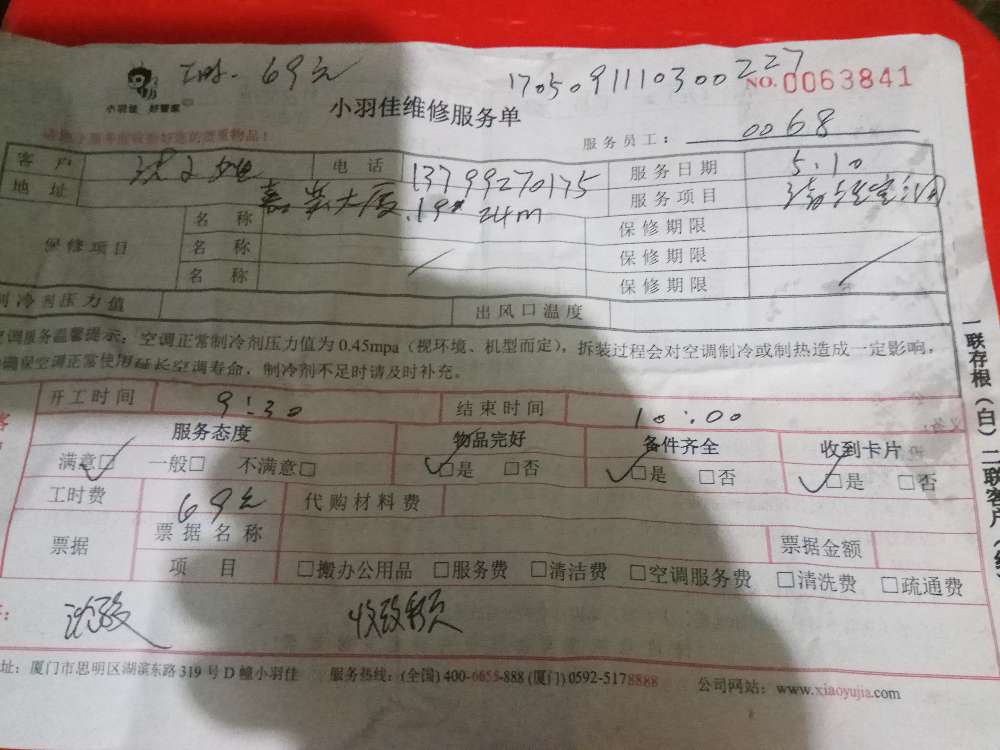 工时. 69元
1705091110300227
NO.0063841
小羽佳 好管家
小羽佳维修服务单
服务员工： 0068
客户 电话 13799270175 服务日期 5.10
地址 嘉 大厦.19# 24m 服务项目
保修项目 名称 保修期限
名称 保修期限
名称 保修期限
制冷剂压力值 出风口温度
空调服务温馨提示：空调正常制冷剂压力值为 0.45mpa（视环境、机型而定），拆装过程会对空调制冷或制热造成一定影响，
确保空调正常使用延长空调寿命，制冷剂不足时请及时补充。
开工时间 9:30 结束时间 10:00
服务态度 物品完好 备件齐全 收到卡片
满意□ 一般□ 不满意□ □是 □否 □是 □否 □是 □否
工时费 69元 代购材料费
票据 票据名称 票据金额
项目 □搬办公用品 □服务费 □清洁费 □空调服务费 □清洗费 □疏通费
址：厦门市思明区湖滨东路 319 号 D 幢小羽佳 服务热线：(全国) 400-6655-888 (厦门) 0592-5178888 公司网站：www.xiaoyujia.com
一联存根（白）二联客户（